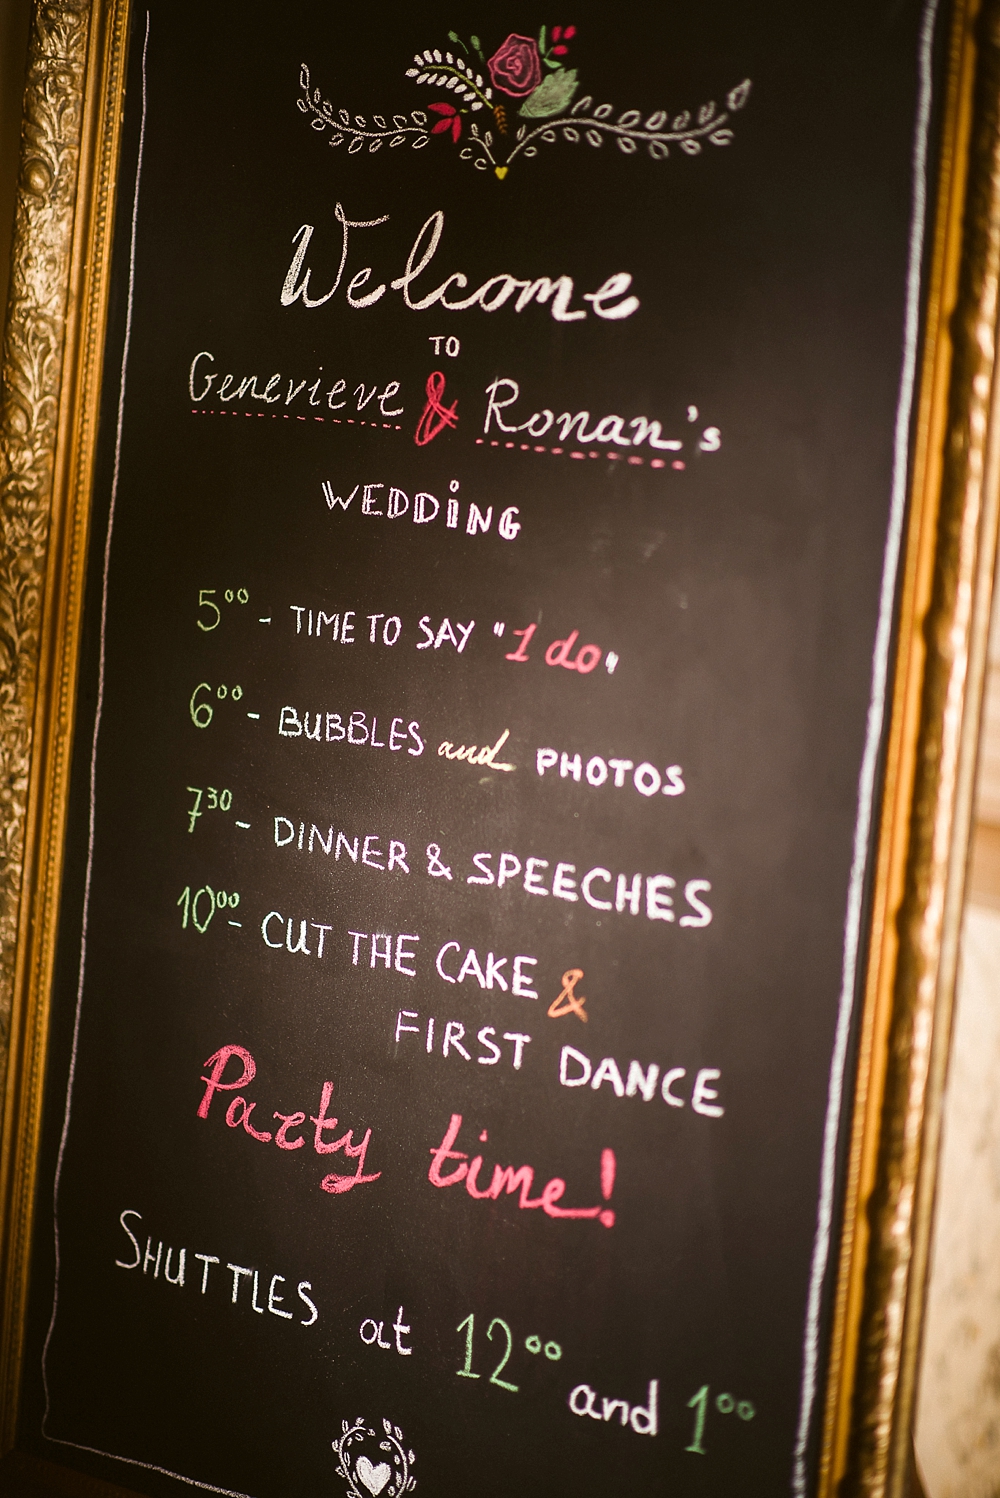 Welcome
TO
Genevieve & Ronan's
WEDDiNG
5⁰⁰ - TIME TO SAY "I do"
6⁰⁰ - BUBBLES and PHOTOS
7³⁰ - DINNER & SPEECHES
10⁰⁰ - CUT THE CAKE &
FIRST DANCE
Party time!
SHUTTLES at 12⁰⁰ and 1⁰⁰